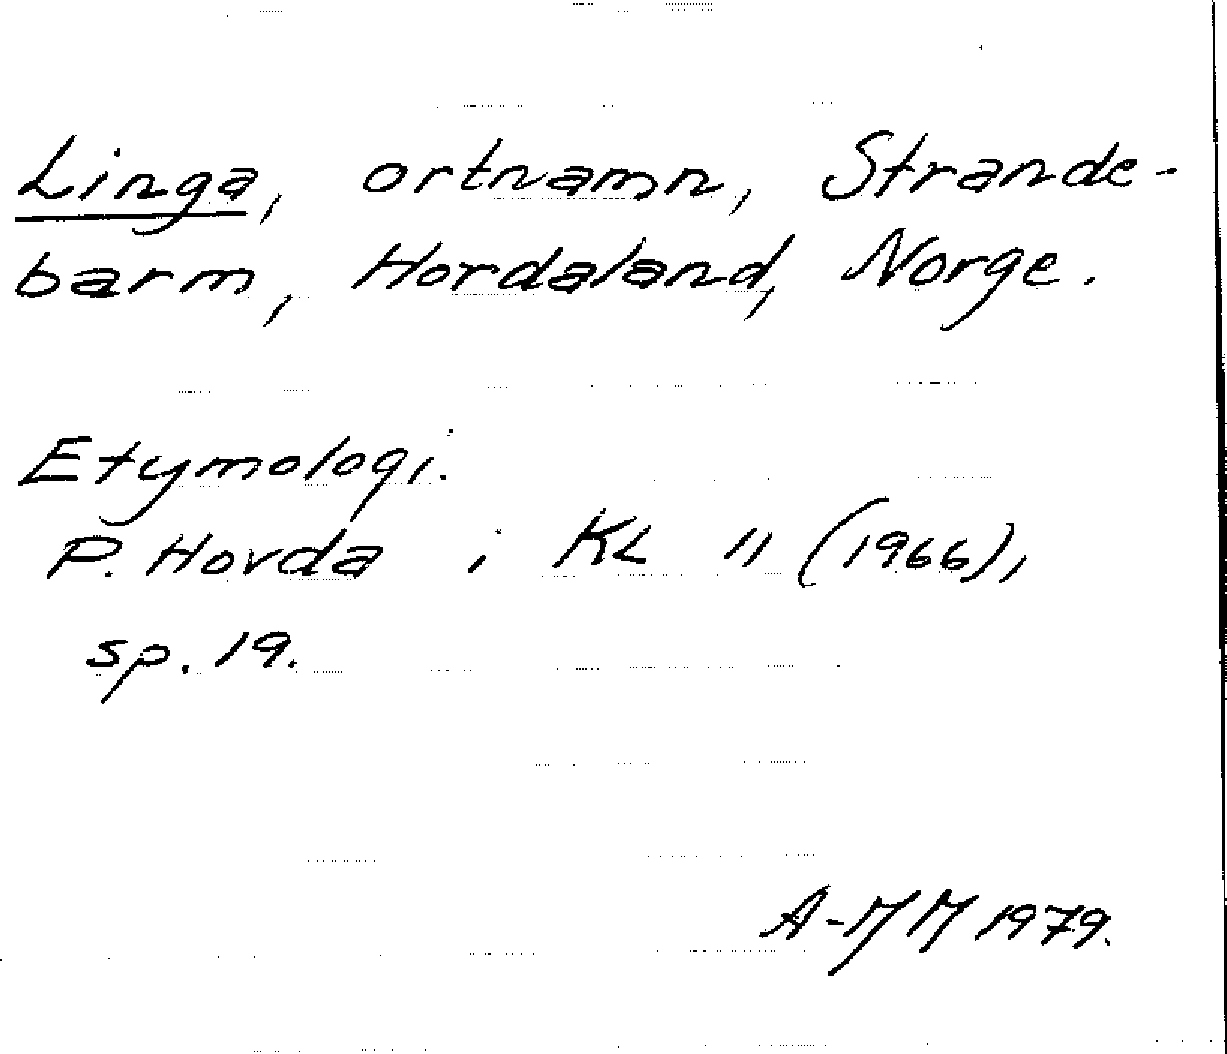 Linga, ortnamn, Strande-
barm, Hordaland, Norge.
Etymologi.
P. Hovda i KL 11 (1966),
sp. 19.
A-MM 1979.